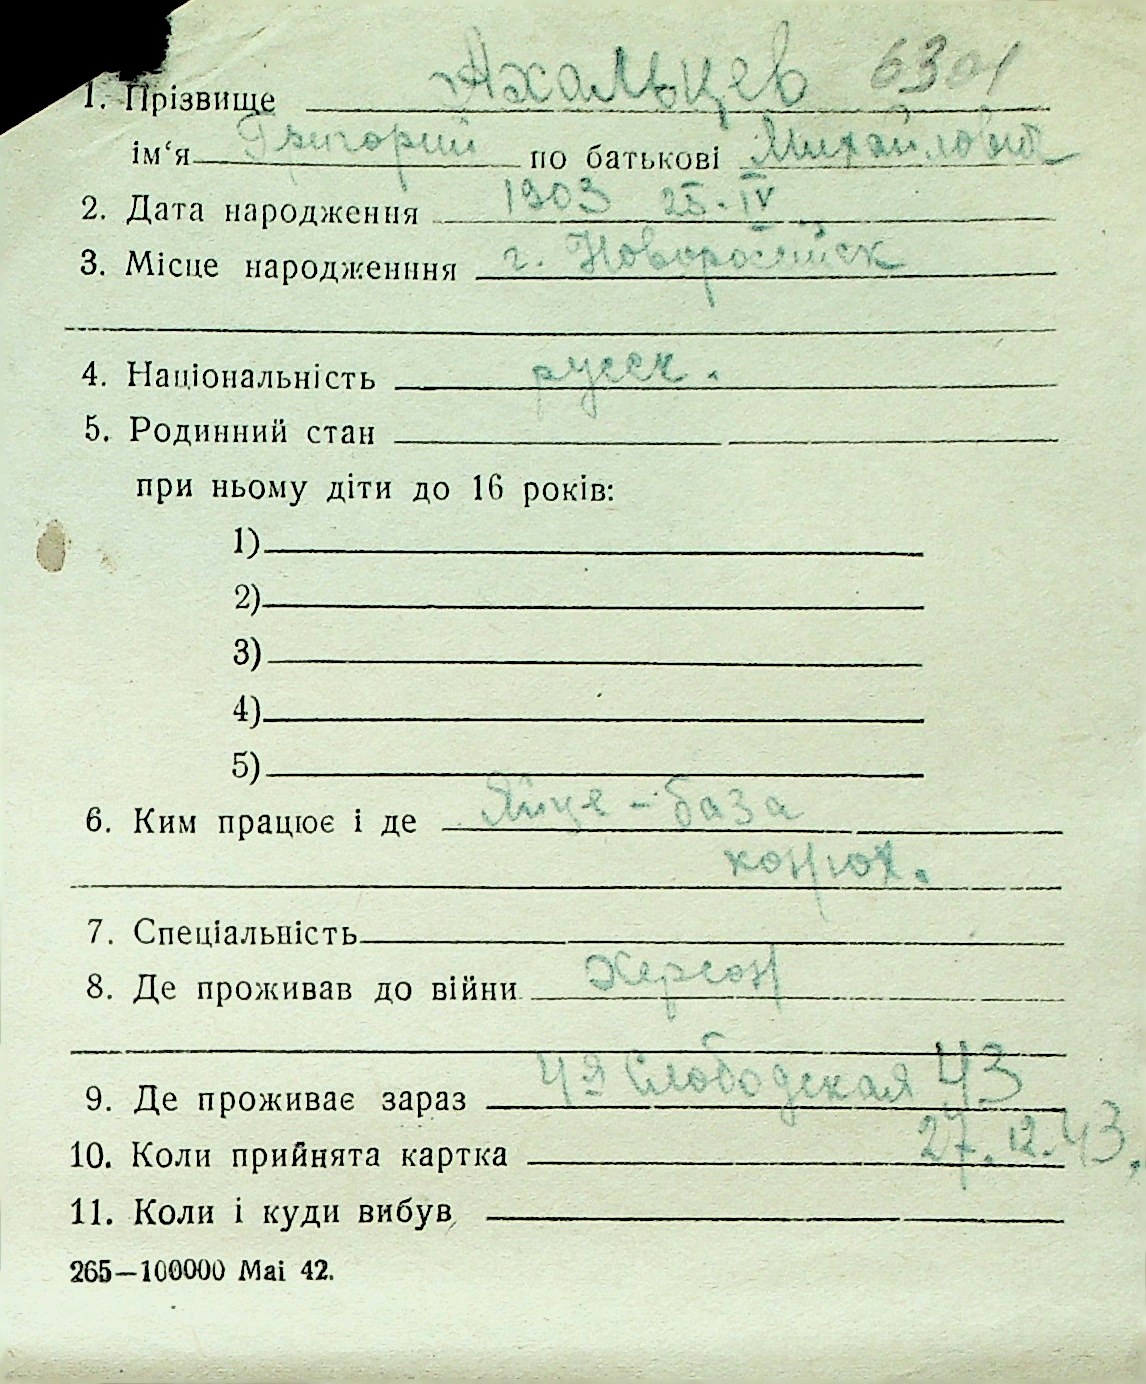 1. Прізвище Ахальцев 6301
ім‘я Григорий по батькові Михайлович
2. Дата народження 1903 25-IV
3. Місце народженння г. Новоросийск
4. Національність русск.
5. Родинний стан
при ньому діти до 16 років:
1)
2)
3)
4)
5)
6. Ким працює і де Яйце-база
конюх.
7. Спеціальність
8. Де проживав до війни Херсон
9. Де проживає зараз 4я Слободская 43
10. Коли прийнята картка 27.12.43.
11. Коли і куди вибув
265—100000 Mai 42.